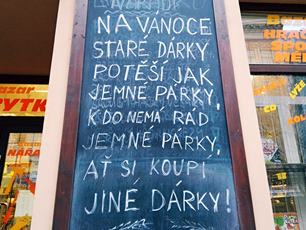 NA VÁNOCE
STARÉ DÁRKY
POTĚŠÍ JAK
JEMNÉ PÁRKY,
KDO NEMÁ RÁD
JEMNÉ PÁRKY,
AŤ SI KOUPÍ
JINÉ DÁRKY!
Bazar
HRAČ
SPO
azar
RYTK
NÁŘA
CD